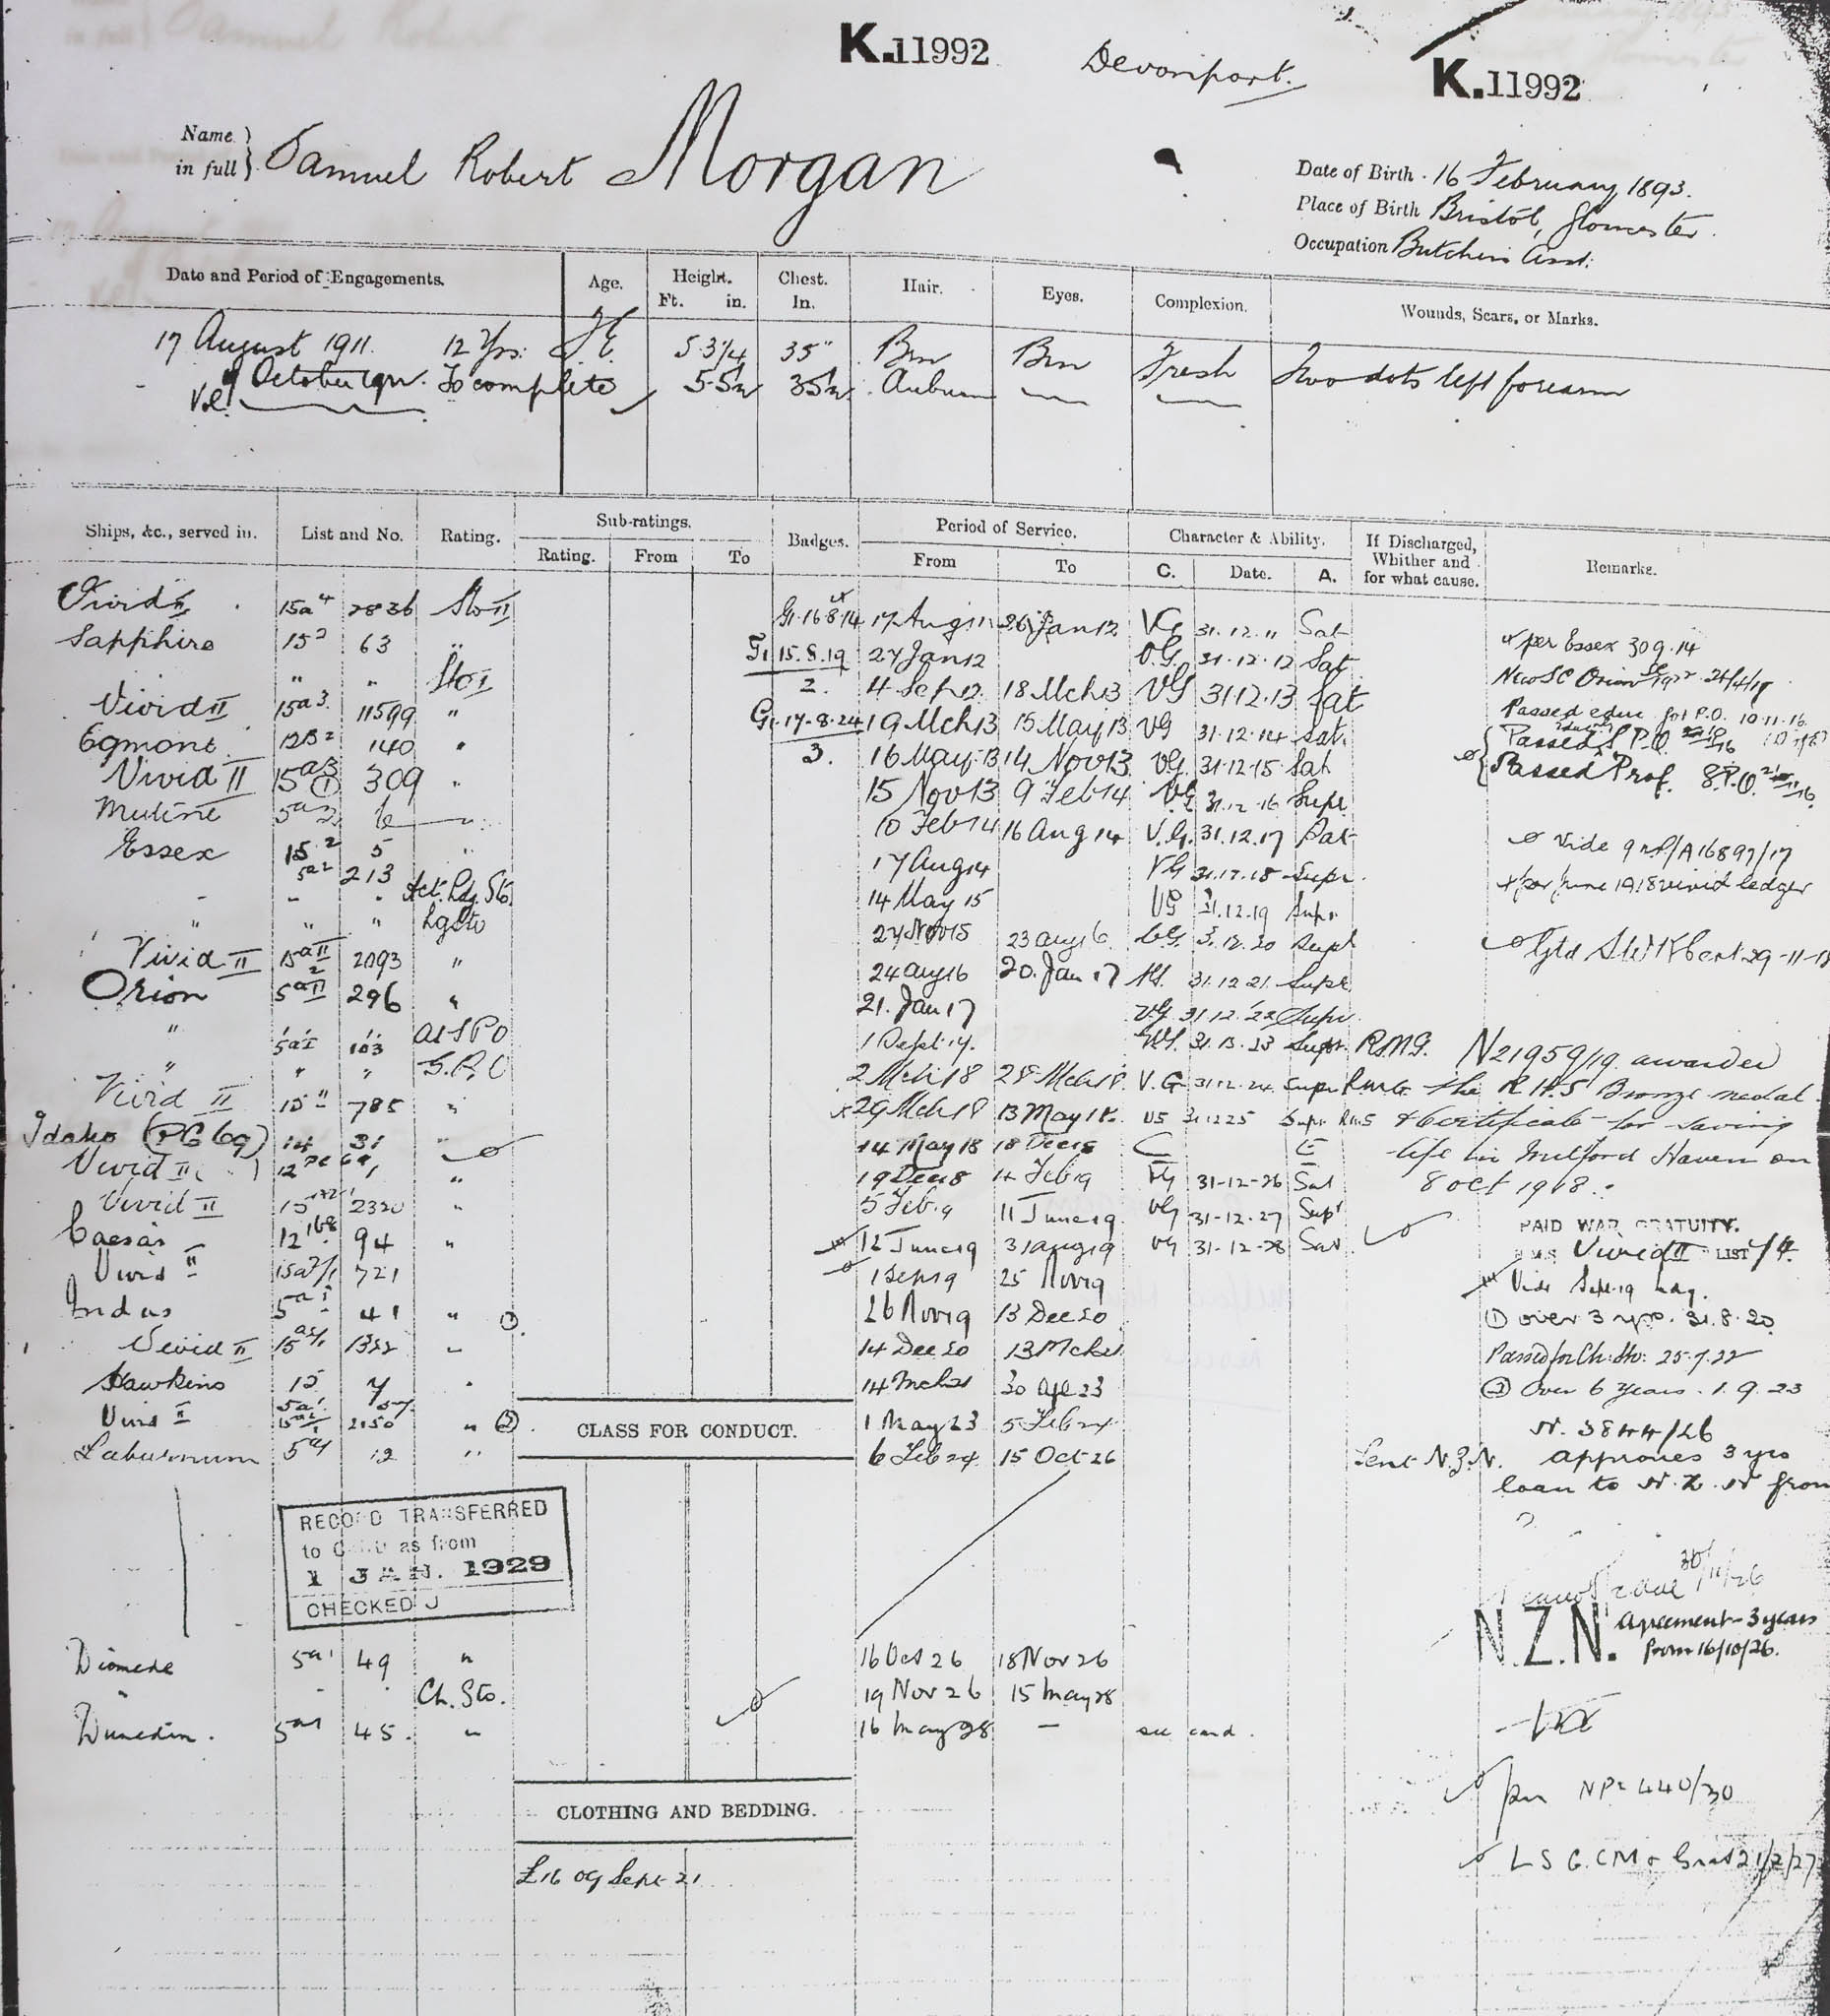 K.11992 Devonport. K.11992
Name in full } Samuel Robert Morgan
Date of Birth 16 February 1893.
Place of Birth Bristol, Gloucester.
Occupation Butchers Asst.
Date and Period of Engagements. Age. Height. Ft. in. Chest. In. Hair. Eyes. Complexion. Wounds, Scars, or Marks.
17 August 1911. 12 Yrs. 5.3¼ 35" Brn Brn Fresh Two dots left forearm
October To complete 5.5½ 35½ Auburn
Ships, &c., served in. List and No. Rating. Sub-ratings. Rating. From To Badges. Period of Service. From To Character & Ability. C. Date. A. If Discharged, Whither and for what cause. Remarks.
Vivid II 15a4 2836 Sto II G1.16.8.14 17 Aug 11 26 Jan 12 VG 31.12.11 Sat
Sapphire 15² 63 " G1 15.8.19 27 Jan 12 V.G. 31.12.12 Sat per Essex 30 9.14
" " Sto I 2. 4 Sep 12 18 Mch 13 VG 31.12.13 Sat New SC Orion
Vivid II 15a3. 11599 " G1.17-8-24 19 Mch 13 15 May 13 VG 31.12.14 Sat. Passed educ for P.O. 10.11.16
Egmont 12B2 140 " 3. 16 May 13 14 Nov 13 VG. 31.12.15 Sat Passed S.P.O.
Vivid II 15a3 309 " 15 Nov 13 9 Feb 14 VG 31.12.16 Supr Passed Prof. S.P.O.
Mutine 5a2 6 " 10 Feb 14 16 Aug 14 V.G. 31.12.17 Sat
Essex 15.2 5 " 17 Aug 14 VG 31.12.18 Supr. Vide /A16897/17
5a2 213 Act. Ldg. Sto. 14 May 15 VG 31.12.19 Supr per June 1918 vivid ledger
" " " Lg Sto 27 Nov 15 23 Aug 16 VG. 31.12.20 Supr
Vivid II 15aII 2093 " 24 Aug 16 20. Jan 17 VG. 31.12.21. Supr
Orion 5aII 296 " 21. Jan 17 VG 31.12.'22 Supr.
" 5aI 103 a/SPO 1 Sept 17. VG. 31.12.23 Supr. R.M.G. N21959/19. awarded
" " " S.P.O 2 Mch 18 28 Mch 18. V.G. 31.12.24 Supr R.M.G. the R.H.S Bronze medal
Vivid II 15" 785 " 29 Mch 18 13 May 18. VG 31.12.25 Supr RMG & Certificate for saving
Idaho (PC 69) 14 31 " 14 May 18 18 Dec 18 life in Milford Haven on
Vivid II 12 " 19 Dec 18 4 Feb 19 VG 31-12-26 Sat 8 Oct 1918.
Vivid II 15 2320 " 5 Feb 19 11 June 19. VG 31-12-27 Supr
Caesar 12 168 94 " 12 June 19 31 Aug 19 VG 31-12-28 Sat PAID WAR GRATUITY.
H.M.S Vivid II LIST 14.
Vivid II 721 " 1 Sep 19 25 Nov 19 Vide Sept 19 ldg.
Indus 5a1 41 " ① 26 Nov 19 13 Dec 20 ① over 3 yrs. 31.8.20
Vivid II 1322 " 14 Dec 20 13 Mch 21 Passed for Ch: Sto: 25.7.22
Hawkins 15 7 " 14 Mch 21 30 Apl 23 ② Over 6 years. 1.9.23
Vivid II 2150 " ② CLASS FOR CONDUCT. 1 May 23 5 Feb 24 N. 3844/26
Laburnum 5a1 12 " 6 Feb 24 15 Oct 26 Lent N.Z.N. Approves 3 yrs
loan to N.Z.N from
RECORD TRANSFERRED
to as from
1 JAN. 1929
CHECKED J
30/11/26
N.Z.N. Agreement 3 years
from 16/10/26.
Diomede 5a1 49 " 16 Oct 26 18 Nov 26
" Ch. Sto. 19 Nov 26 15 May 28
Dunedin. 5a1 45. " 16 May 28 – see card.
per NP2 440/30
CLOTHING AND BEDDING.
LS G. CM & Grat 21/2/27
£16 09 Sept 21